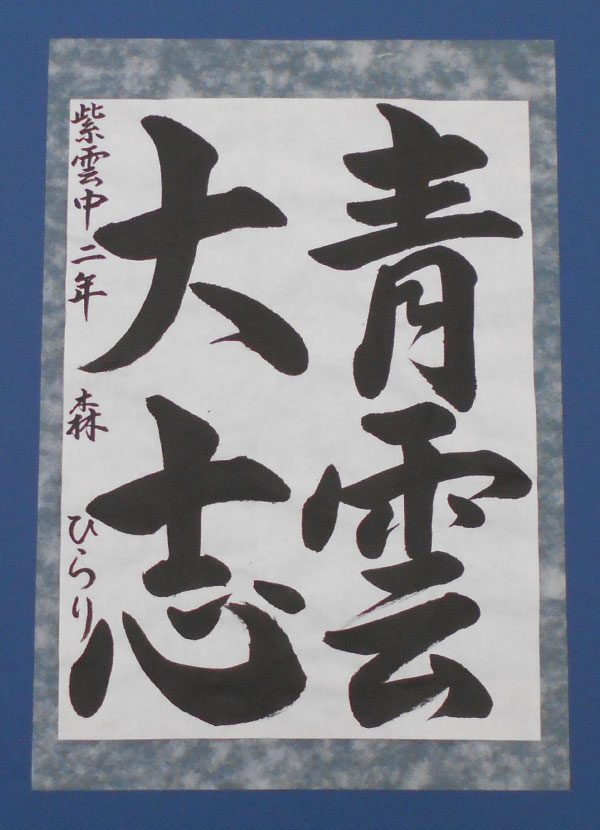 青雲
大志
紫雲中二年 森 ひらり